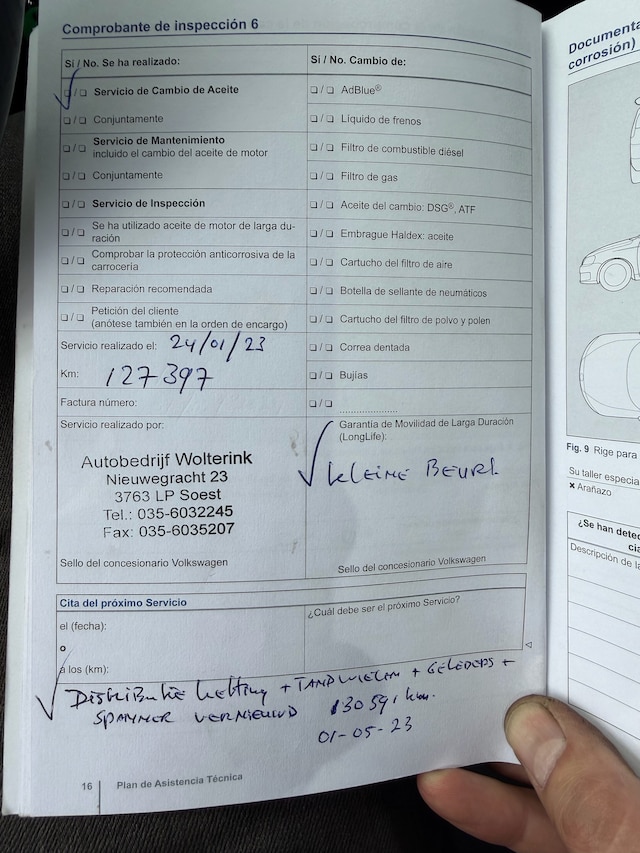 Comprobante de inspección 6
Sí / No. Se ha realizado:
❏ / ❏ Servicio de Cambio de Aceite
❏ / ❏ Conjuntamente
❏ / ❏ Servicio de Mantenimiento
incluido el cambio del aceite de motor
❏ / ❏ Conjuntamente
❏ / ❏ Servicio de Inspección
❏ / ❏ Se ha utilizado aceite de motor de larga du-
ración
❏ / ❏ Comprobar la protección anticorrosiva de la
carrocería
❏ / ❏ Reparación recomendada
❏ / ❏ Petición del cliente
(anótese también en la orden de encargo)
Servicio realizado el: 24/01/23
Km: 127397
Factura número:
Servicio realizado por:
Autobedrijf Wolterink
Nieuwegracht 23
3763 LP Soest
Tel.: 035-6032245
Fax: 035-6035207
Sello del concesionario Volkswagen
Sí / No. Cambio de:
❏ / ❏ AdBlue®
❏ / ❏ Líquido de frenos
❏ / ❏ Filtro de combustible diésel
❏ / ❏ Filtro de gas
❏ / ❏ Aceite del cambio: DSG®, ATF
❏ / ❏ Embrague Haldex: aceite
❏ / ❏ Cartucho del filtro de aire
❏ / ❏ Botella de sellante de neumáticos
❏ / ❏ Cartucho del filtro de polvo y polen
❏ / ❏ Correa dentada
❏ / ❏ Bujías
❏ / ❏ ....................
Garantía de Movilidad de Larga Duración
(LongLife):
KLEINE BEURT
Sello del concesionario Volkswagen
Cita del próximo Servicio
el (fecha):
o
a los (km):
¿Cuál debe ser el próximo Servicio?
Distributie ketting + TANDWIELEN + GELEIDERS +
SPANNER VERNIEUWD 130591 km.
01-05-23
16 Plan de Asistencia Técnica
Documenta
corrosión)
Fig. 9 Rige para
Su taller especia
× Arañazo
¿Se han detec
cia
Descripción de la